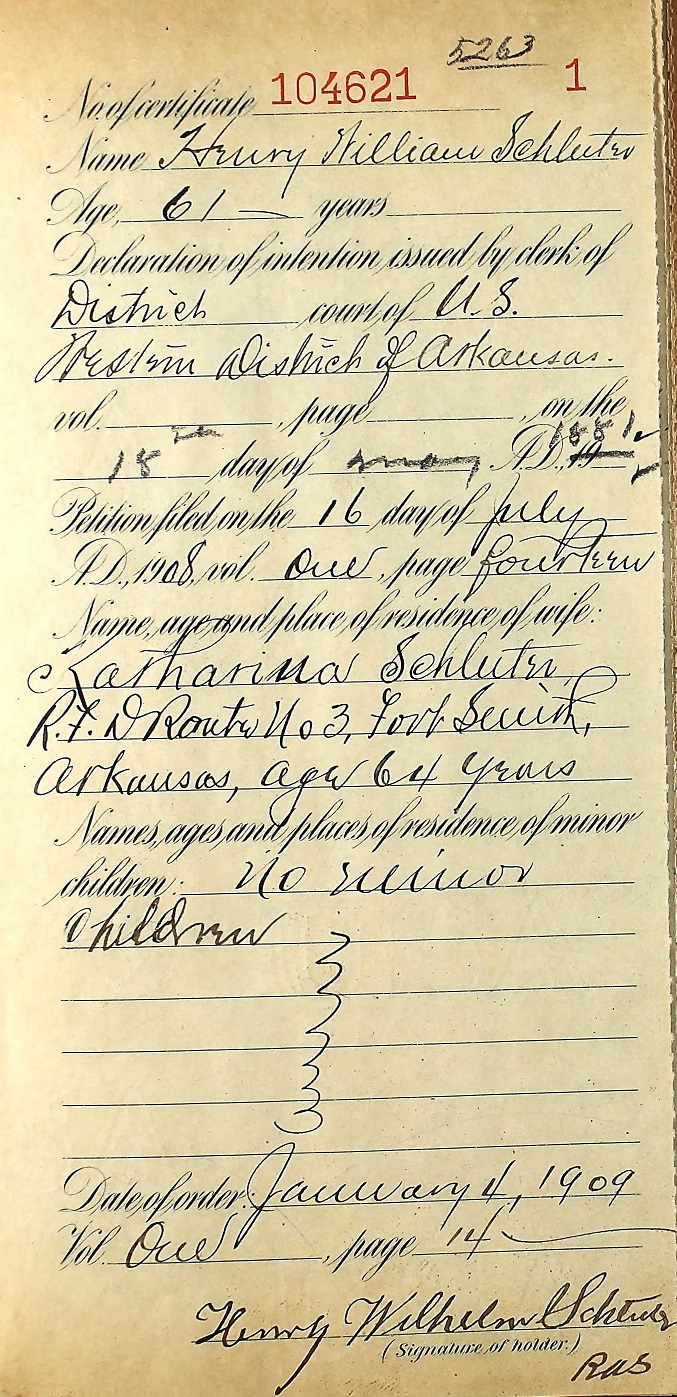 5263
No. of certificate 104621 1
Name Henry William Schluter
Age, 61 — years
Declaration of intention issued by clerk of
District court of U.S.
Western District of Arkansas.
vol. , page , on the
18 day of May A.D., 19 1881
Petition filed on the 16 day of July
A.D., 1908, vol. One, page fourteen
Name, age and place of residence of wife:
Katharina Schluter,
R.F.D Route No 3, Fort Smith,
Arkansas, age 64 years
Names, ages and places of residence of minor
children: no minor
Children
Date of order: January 4, 1909
Vol One, page 14
Henry Wilhelm Schluter
(Signature of holder.)
RAS